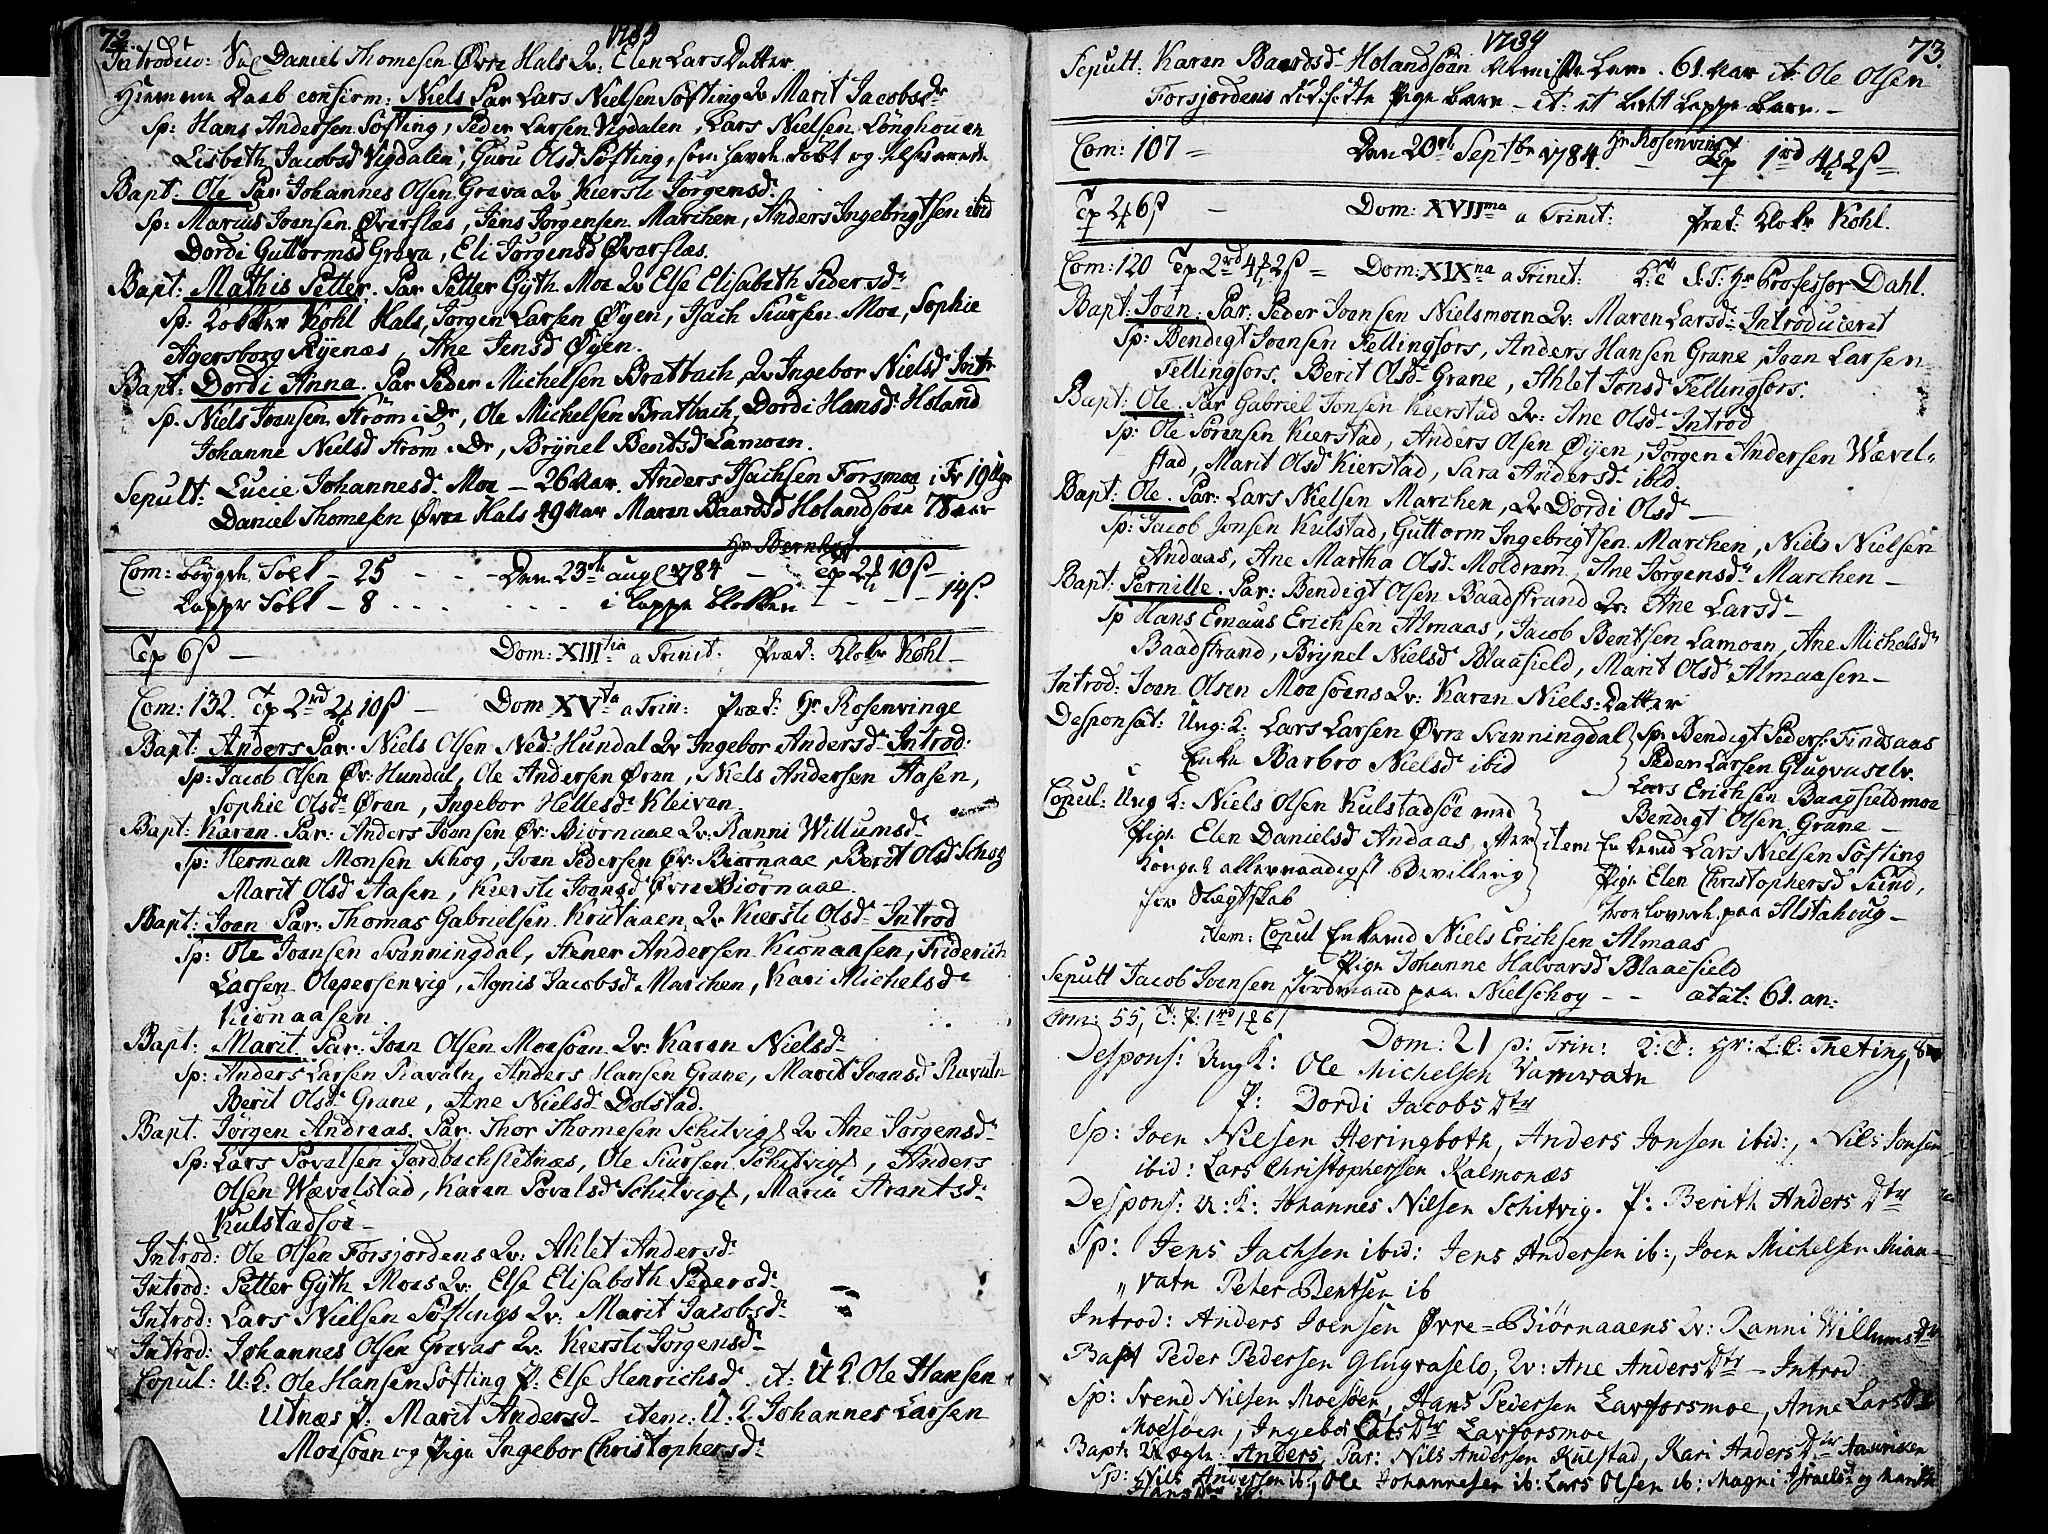 72.
1784
Introduc: Sal Daniel Thomesen Øvre Hals Qv: Elen Lars Datter.
Hiemme Daab confirm: Niels Par Lars Nielsen Søfting Qv Marit Jacobsdr
Sp: Hans Andersen Søfting, Peder Larsen Vigdalen, Lars Nielsen
Lisbeth Jacobsd Vigdalen, Guru Olsd Søfting, som hafde døbt og
Bapt: Ole Par Johannes Olsen Greva Qv Kiersti Jørgensd:
Sp: Marius Joensen Øverfles, Jens Jørgensen Marchen, Anders Ingebrigtsen ibid
Dordi Guttormsd Greva, Eli Jørgensd Øverfles.
Bapt: Mathis Petter. Par Petter Gyth Moe Qv Else Elisabeth Pedersdr
Sp: Kohl Hals, Jørgen Larsen Øyen, Isach Siursen Moe, Sophie
Agersborg Ryenæs, Ane Jensd Øyen.
Bapt: Dordi Anna. Par Peder Michelsen Bratbach, Qv Ingebor Nielsd Intr
Sp. Niels Joensen Strøm i Dr, Ole Michelsen Bratbach, Dordi Hansd: Holand
Johanne Nielsd Strøm. Dr, Brynel Bentsd Lamoen.
Sepult: Lucie Johannesd. Moe — 26 Aar. Anders Isachsen Forsmoe 19 Uger
Daniel Thomesen Øvre Hals 49 Aar Maren Baardsd Holandsøen 78 aar
Com: Bøygde Folk – 25 – Den 23de aug 1784 – Hr Bernhoft. Tp 2 10 ß –
Lappe Folk – 8 – i Lappe Klokken – 14 ß.
Tp 6 ß — Dom: XIIItia a Trinit: Præd: Klokr Kohl –
Com: 132. Tp 2rd 2 10 ß — Dom XVta a Trin: Præd: Hr Rosenvinge
Bapt: Anders Par: Niels Olsen Ned: Hundal Qv Ingebor Andersd Introd:
Sp: Jacob Olsen Øv: Hundal, Ole Andersen Øren, Niels Andersen Aasen,
Sophie Olsd Øren, Ingebor Hellesd Kleiven.
Bapt: Karen. Par: Anders Joensen Øv: Biørnaae Qv: Ranni Willumsd
Sp: Herman Monsen Schog, Joen Pedersen Øv: Biørnaae, Berit Olsd Schog
Marit Olsd Aasen, Kiersti Joensd Øvre Biørnaae.
Bapt: Joen Par: Thomas Gabrielsen Krutaaen Qv Kiersti Olsd Introd
Sp: Ole Joensen Svenningdal, Stener Andersen Kionaasen, Friderich
Larsen Olepersenvig, Agnis Jacobsd Marchen, Kari Michelsd
Kionaasen.
Bapt: Marit Par: Joen Olsen Moesøen Qv: Karen Nielsd
Sp: Anders Larsen Ravaln, Anders Hansen Grane, Marit Joensd Ravaln
Berit Olsd Grane, Ane Nielsd Dolstad.
Bapt. Jørgen Andreas. Par. Thor Thomesen Schitvigf Qv Ane Jørgensd
Sp: Lars Povelsen Jordbachsletnæs, Ole Siursen Schitvigf, Anders
Olsen Wævelstad, Karen Povelsd Schitvigf, Maria Arentsd
Kulstadsøe –
Introd: Ole Olsen Forsjordens Qv: Ahlet Andersd
Introd: Petter Gyth Moes Qv: Else Elisabeth Pedersd
Introd: Lars Nielsen Søftings Qv: Marit Jacobsd
Introd: Johannes Olsen Grevas Qv: Kiersti Jørgensd
Copul: U: K. Ole Hansen Søfting P: Else Henrichsd. it: U K Ole Hansen
Utnæs P: Marit Andersd item: U: K Johannes Larsen
Moesøen og Pige Ingebor Christophersd
1784
73.
Sepult: Karen Baardsd Holandsøen 61 Aar it: Ole Olsen
Forsjordens dødfødte Pige Barn – it: et Lidt Lappe Barn. –
Com: 107 = Den 20de Septbr 1784. Hr Rosenvinge Tp 1rd 4 2 ß =
Tp 2 6 ß – Dom: XVIIma a Trinit: Præd: Klokr Kohl.
Com: 120 Tp 2rd 4 2 ß = Dom: XIXna a Trinit: S: T: Hr Professor Dahl.
Bapt: Joen. Par: Peder Joensen Nielsmoen Qv: Maren Larsd Introduceret
Sp: Bendigt Joensen Fellingfors, Anders Hansen Grane, Joen Larsen
Fellingfors. Berit Olsd Grane, Ahlet Jonsd Fellingfors.
Bapt: Ole. Par Gabriel Jonsen Kierstad Qv: Ane Olsd Introd
Sp: Ole Sørensen Kierstad, Anders Olsen Øyen, Jørgen Andersen Wævel-
stad, Marit Olsd Kierstad, Sara Andersd ibid.
Bapt: Ole. Par: Lars Nielsen Marchen, Qv Dordi Olsd –
Sp: Jacob Jonsen Kulstad, Guttorm Ingebrigtsen Marchen, Niels Nielsen
Andaas, Ane Martha Olsd Moldrem, Ane Jørgensd Marchen –
Bapt: Pernille. Par: Bendigt Olsen Baadstrand Qv: Ane Larsd –
Sp Hans Emaus Erichsen Almaas, Jacob Bentsen Lamoen, Ane Michelsd
Baadstrand, Brynel Nielsd Blaafield, Marit Olsd Almaasen –
Introd: Joen Olsen Moesøens Qv: Karen Niels:Datter
Desponsat: Ung: K: Lars Larsen Øvre Svenningdal Sp: Bendigt Peders: Findsaas
Enke Barbro Nielsd ibid Peder Larsen Glugvaselv.
Lars Erichsen Baagfieldmoe
Bendigt Olsen Grane –
Copul: Ung K: Niels Olsen Kulstadsøe med
Pige Elen Danielsd Andaas, efter
Konget allernaadigst Bevilling
for Slegtskab
item Enkemd Lars Nielsen Søfting
Pige Elen Christophersd Sund,
trolovede paa Alstahoug –
item: Copul Enkemd Niels Erichsen Almaas
Pige Johanne Halvorsd Blaafield
Sepult Jacob Joensen paa Nielschog – – ætat: 61. an:
Com: 55, T: P: 1rd 1 6
Dom: 21 p: Trin: Hr: L: C: Theting,
Despons: Ung K: Ole Michelsen Vamvatn
P: Dordi Jacobs Dtr
Sp: Joen Nilsen Heringboth, Anders Jonsen ibid:, Nils Jonsen
ibid: Lars Christophersen Kalmonæs
Despons: U: K: Johannes Nilsen Schitvig. P: Berith Anders Dtr
Sp: Jens Jachsen ibid: Jens Andersen ib:, Joen Michelsen Mian-
„ vatn Peter Bentsen ib
Introd: Anders Joensen Øvre=Biørnaaens Qv: Ranni Willums Dtr
Bapt Peder Pedersen Glugvaselv, Qv: Ane Anders Dtr – Introd
Sp: Svend Nilsen Moesøen, Hans Pedersen Laxforsmoe, Anne Lars Dtr
Moesøen, Ingebor Ols Dtr Laxforsmoe
Bapt: Uægte: Anders, Par: Nils Andersen Kulstad, Kari Anders Dtr
Sp: Nils Andersen ib:, Ole Johannesen ib: Lars Olsen ib: Magni Israelsd og Marit